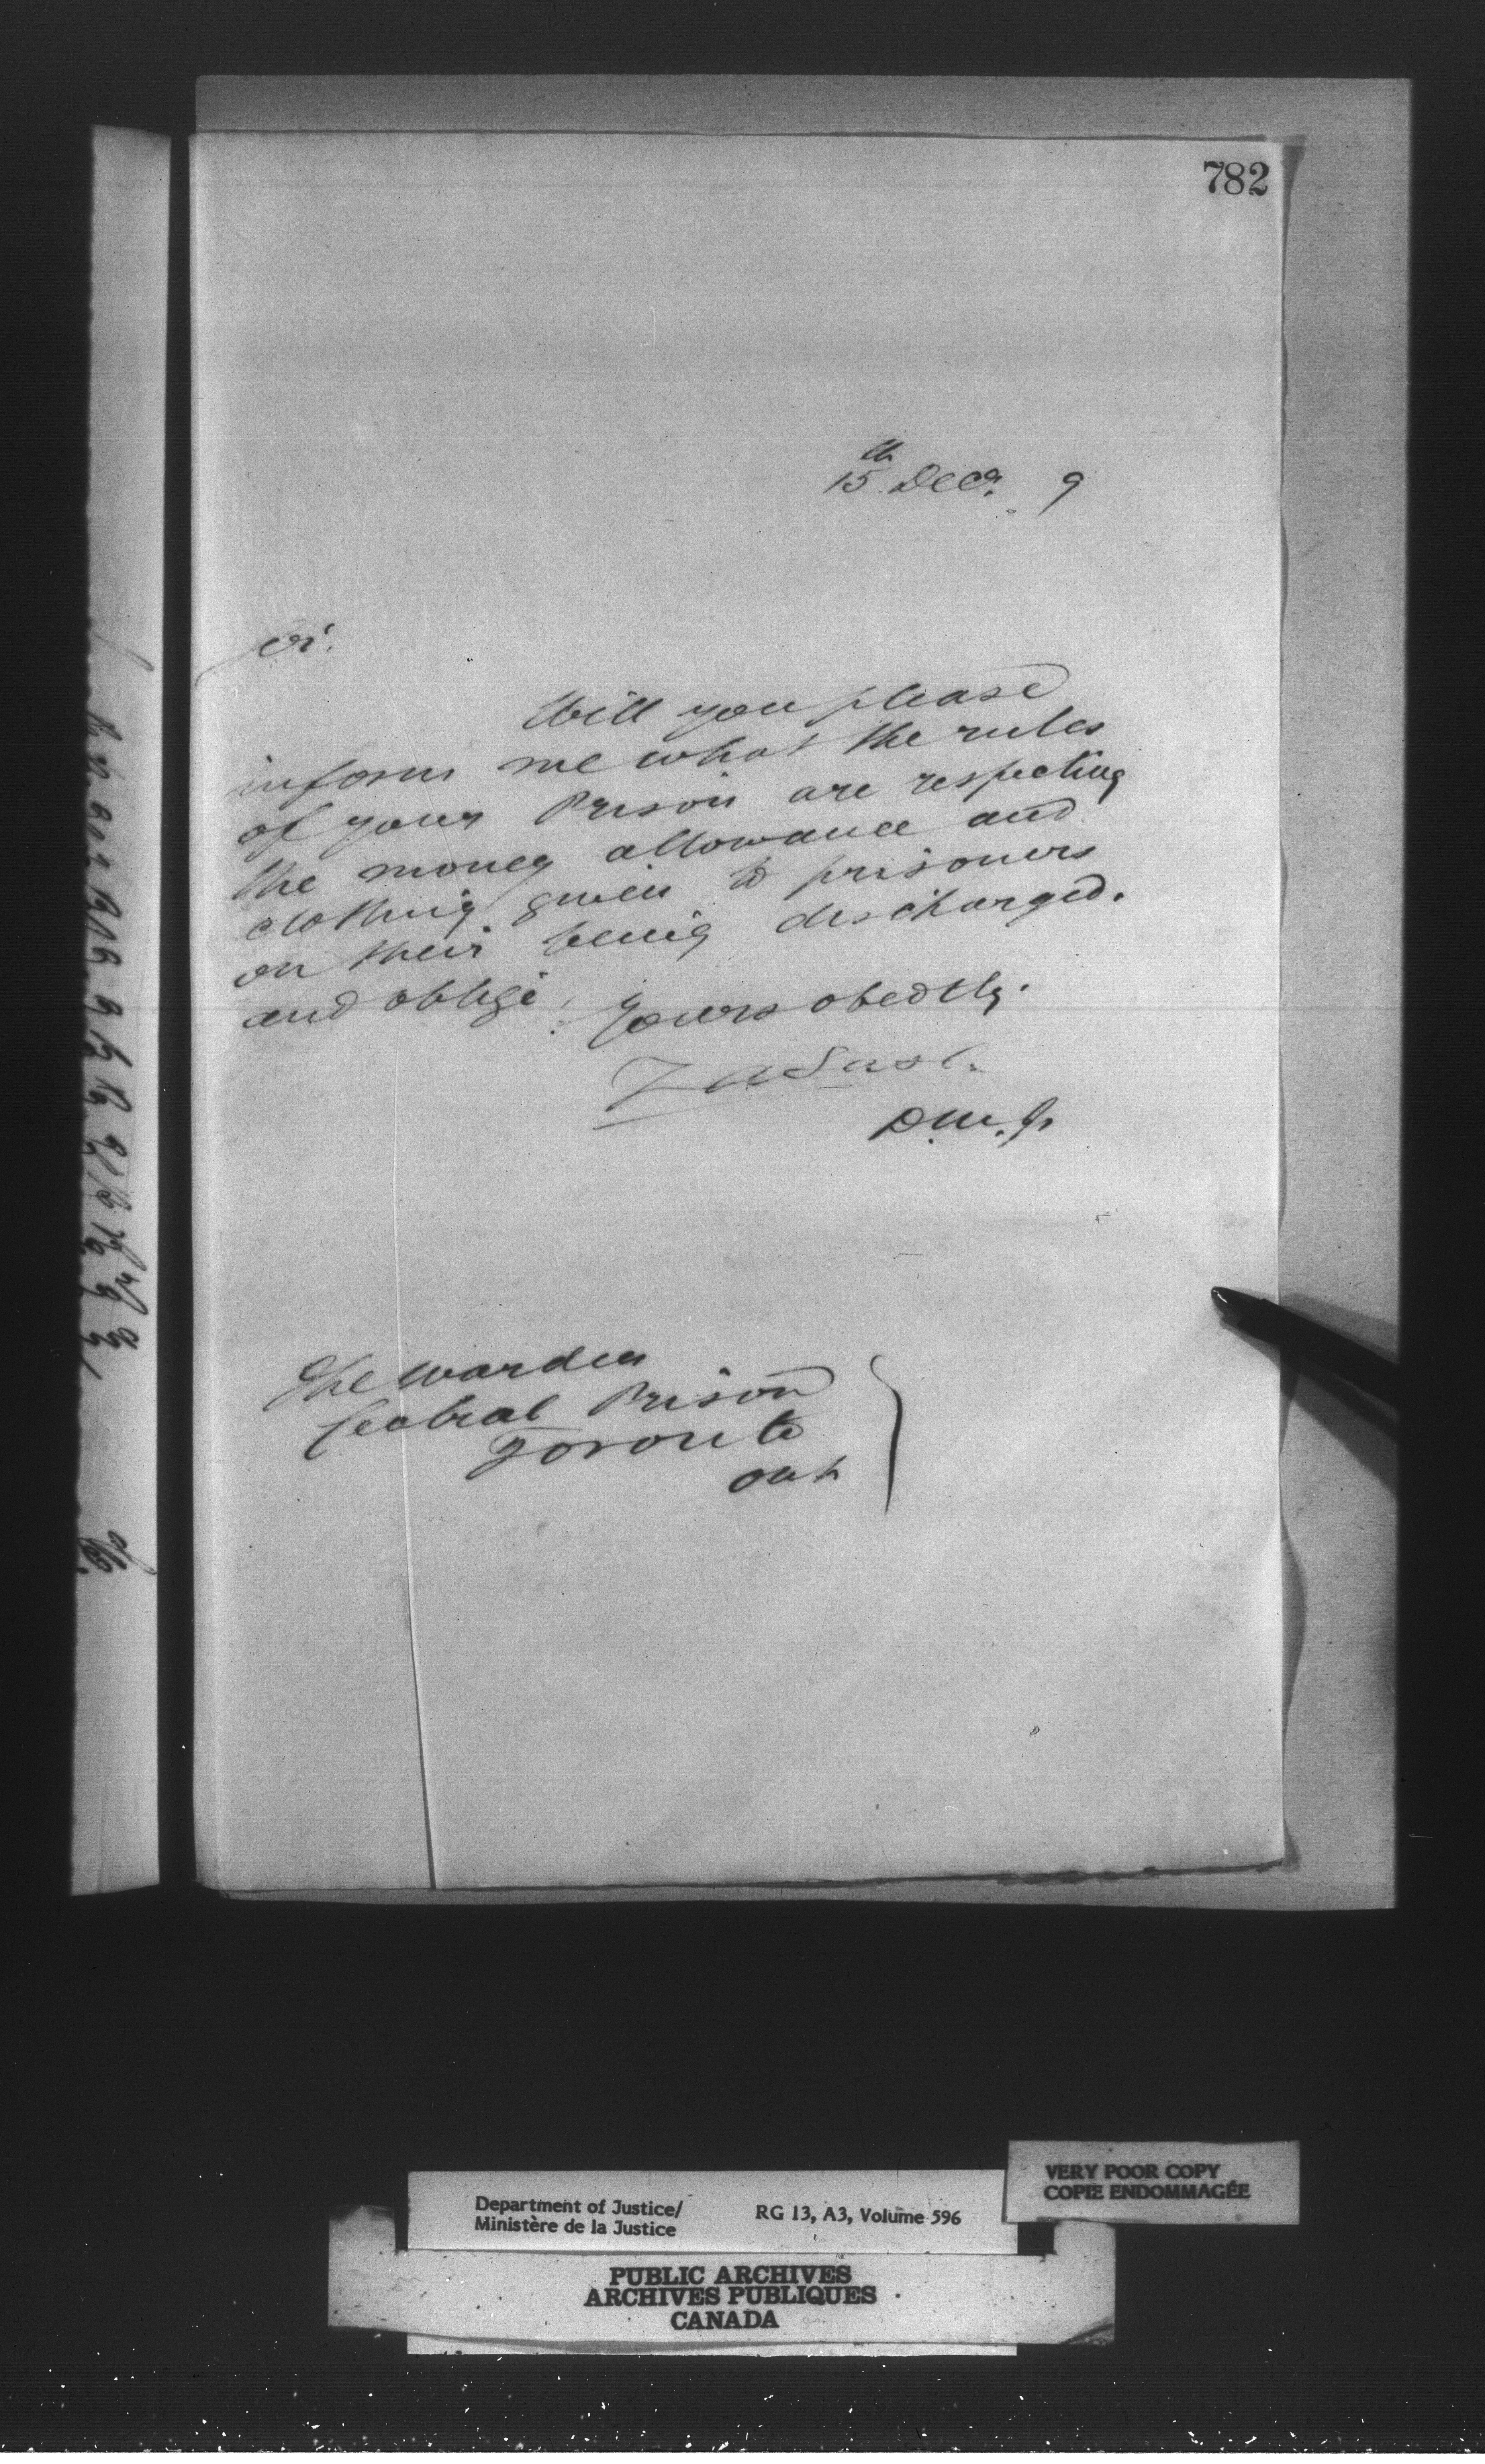 782
15th Decr. 9
Sir.
Will you please
inform me what the rules
of your Prison are respecting
the money allowance and
clothing given to prisoners
on their being discharged.
and oblige,
Yours obedtly.
Z A Lash.
D.M.J.
The Warden
Central Prison
Toronto
Ont
VERY POOR COPY
COPIE ENDOMMAGÉE
Department of Justice/
Ministère de la Justice
RG 13, A3, Volume 596
PUBLIC ARCHIVES
ARCHIVES PUBLIQUES
CANADA